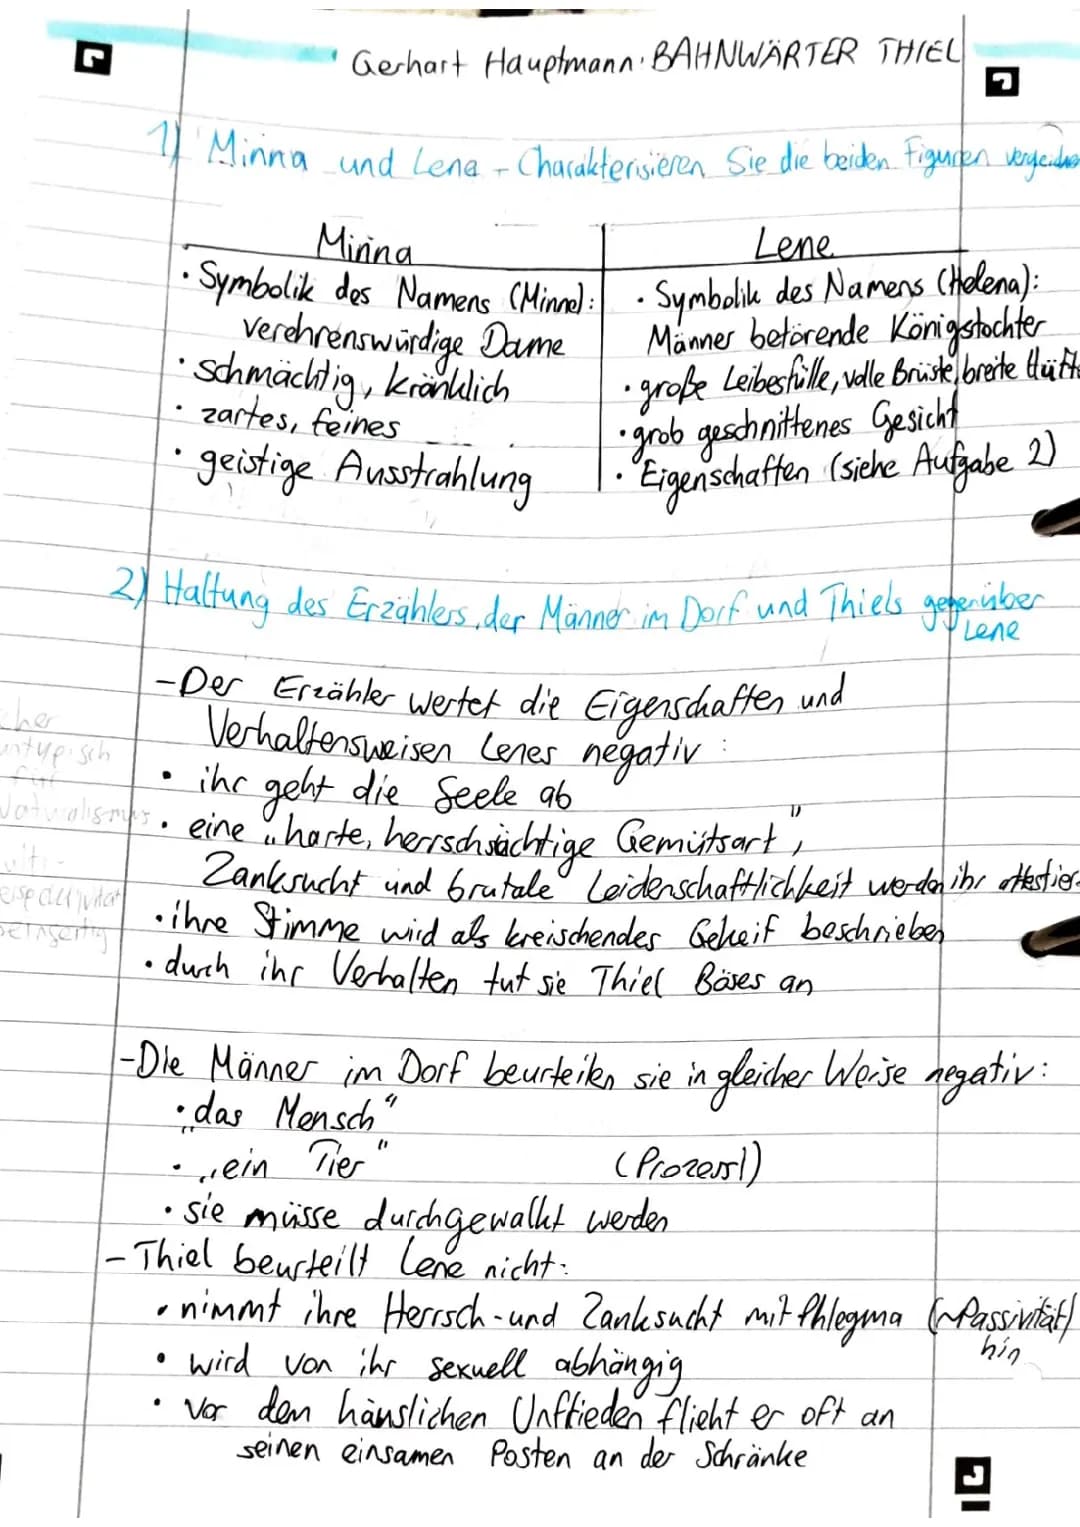 Gerhart Hauptmann: BAHNWÄRTER THIEL
1) Minna und Lene - Charakterisieren Sie die beiden Figuren
Minna
• Symbolik des Namens (Minne):
verehrenswürdige Dame
• schmächtig, kränklich
• zartes, feines
• geistige Ausstrahlung
Lene
• Symbolik des Namens (Helena):
Männer betörende Königstochter
• große Leibesfülle, volle Brüste, breite Hüft
• grob geschnittenes Gesicht
• Eigenschaften (siehe Aufgabe 2)
2) Haltung des Erzählers, der Männer im Dorf und Thiels gegenüber
Lene
- Der Erzähler wertet die Eigenschaften und
Verhaltensweisen Lenes negativ:
• ihr geht die Seele ab
• eine „harte, herrschsüchtige Gemütsart",
Zanksucht und brutale Leidenschaftlichkeit werden ihr attestier
• ihre Stimme wird als kreischendes Gekeif beschrieben
• durch ihr Verhalten tut sie Thiel Böses an
cher
untypisch
für
Naturalismus
- Die Männer im Dorf beurteilen sie in gleicher Weise negativ:
• „das Mensch"
• „ein Tier" (Prozess!)
• sie müsse durchgewalkt werden
- Thiel beurteilt Lene nicht:
• nimmt ihre Herrsch- und Zanksucht mit Phlegma (~Passivität)
hin
• wird von ihr sexuell abhängig
• vor dem häuslichen Unfrieden flieht er oft an
seinen einsamen Posten an der Schränke